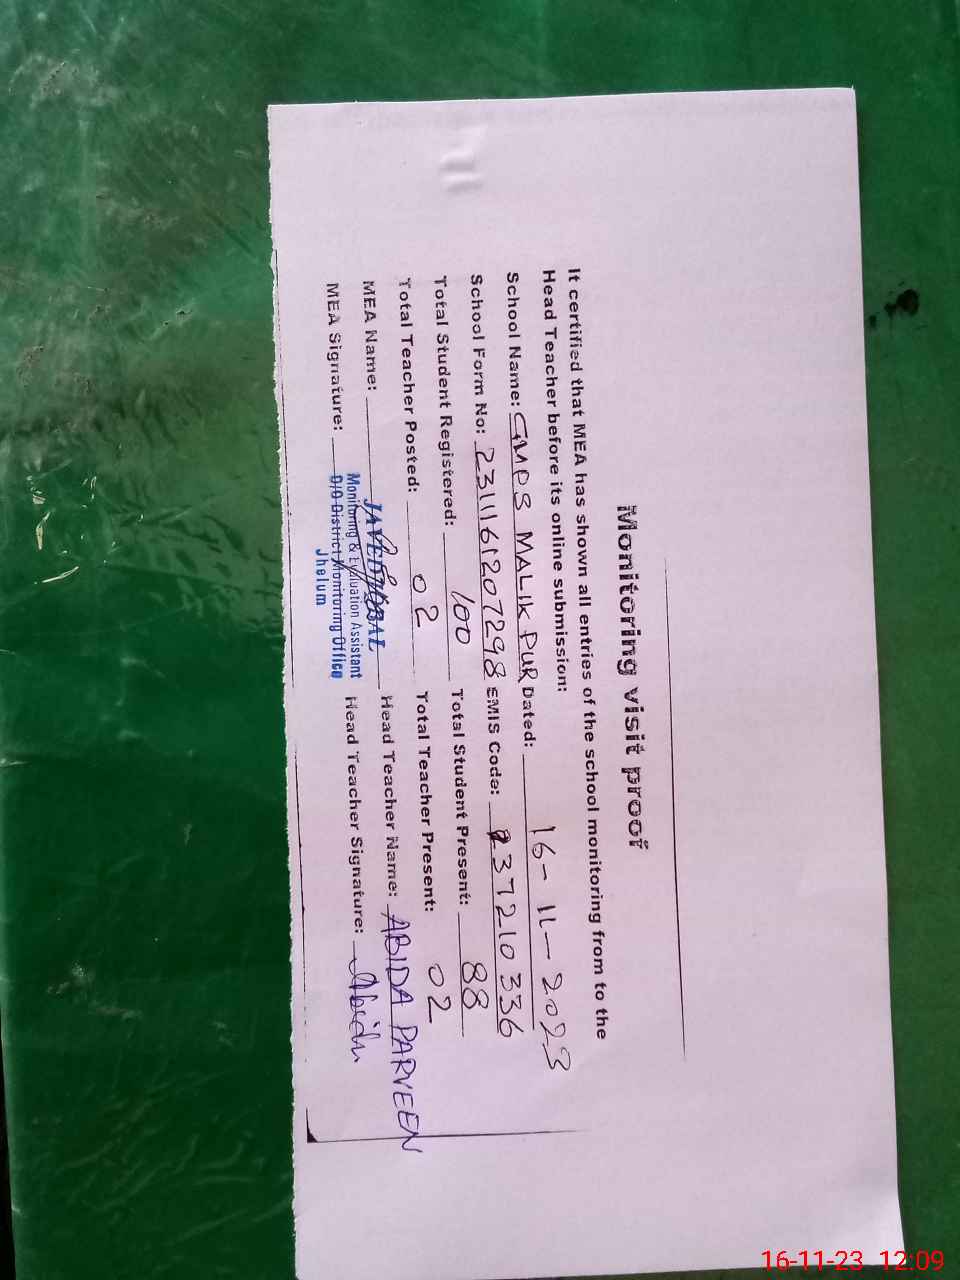 Monitoring visit proof
It certified that MEA has shown all entries of the school monitoring from to the
Head Teacher before its online submission:
School Name: GMPS MALIK PUR Dated: 16-11-2023
School Form No: 2311161207298 EMIS Code: 37210336
Total Student Registered: 100 Total Student Present: 88
Total Teacher Posted: 02 Total Teacher Present: 02
MEA Name: JAVED IQBAL Head Teacher Name: ABIDA PARVEEN
Monitoring & Evaluation Assistant
MEA Signature: D/O District Monitoring Office Head Teacher Signature: Abida
Jhelum
16-11-23 12:09